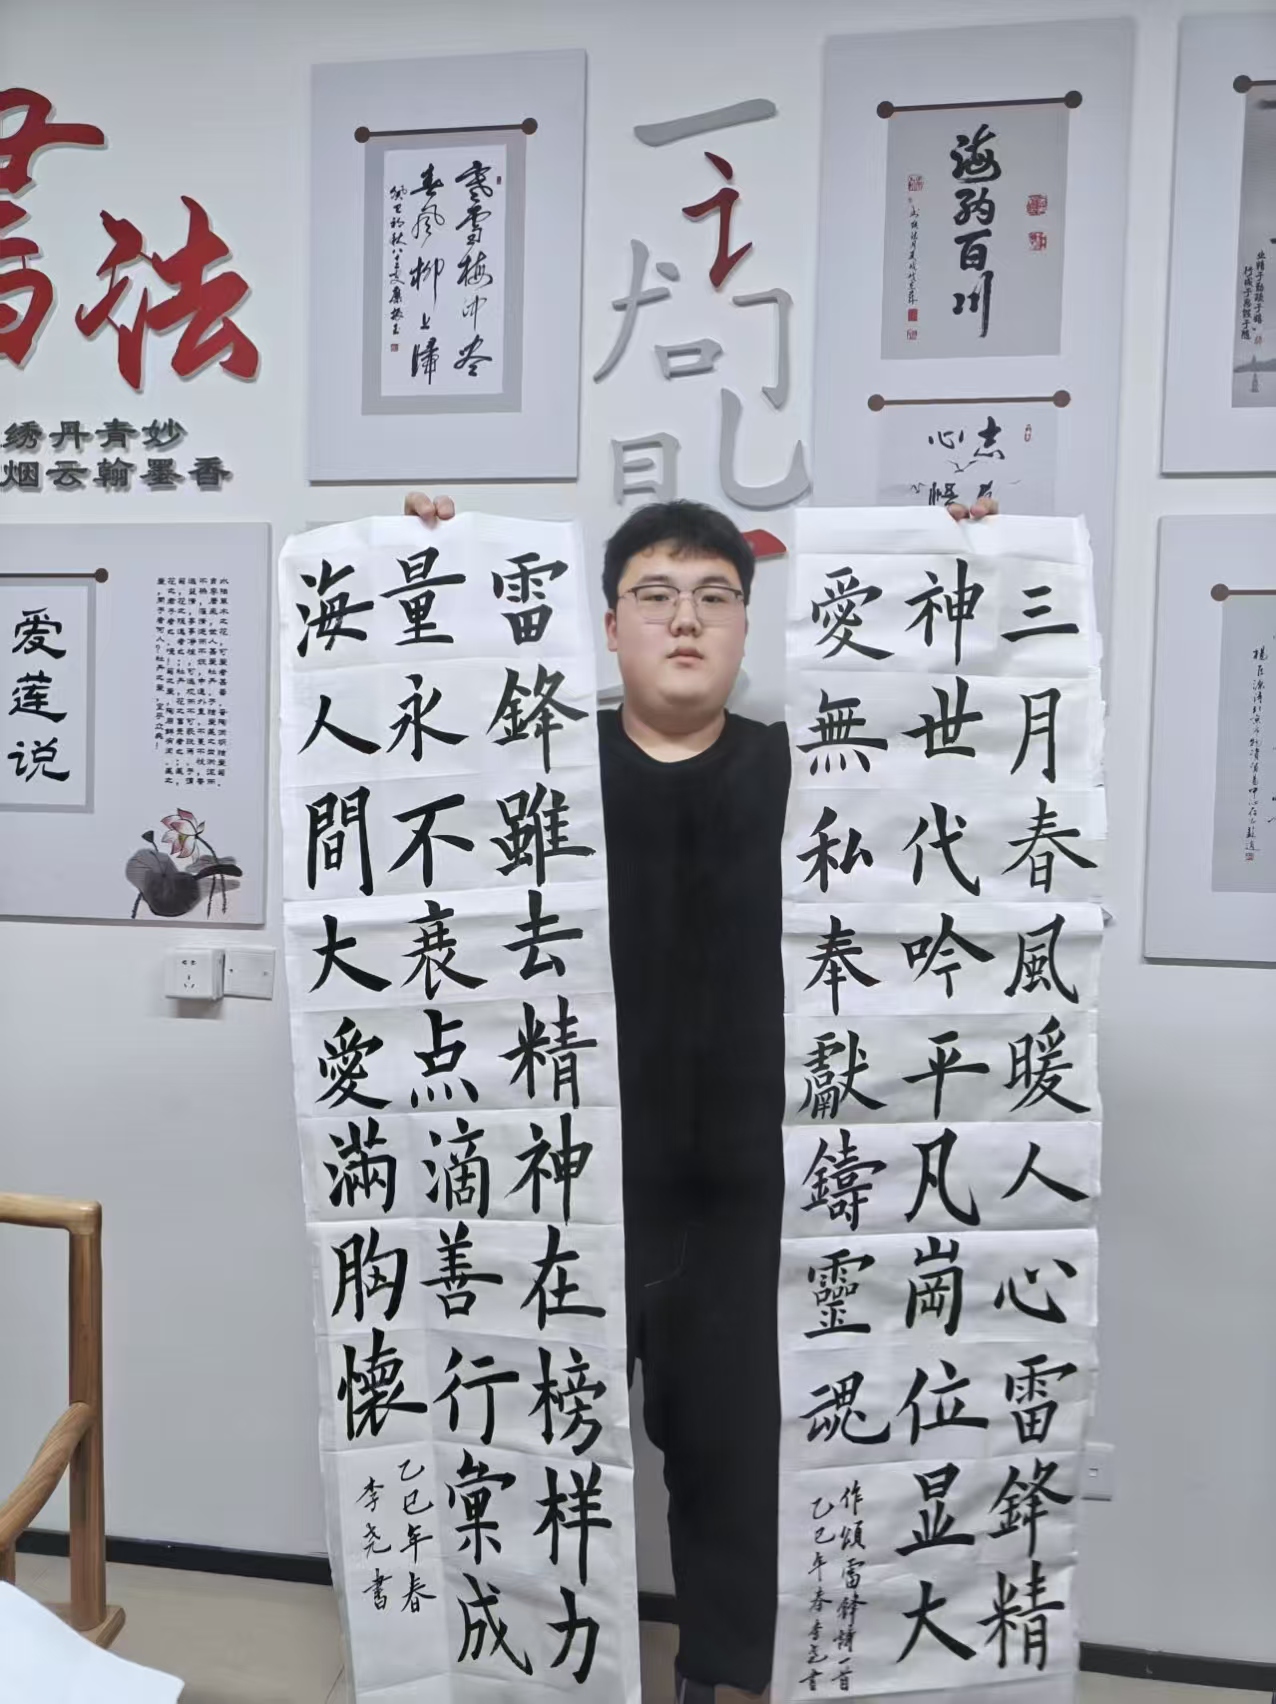 三月春風暖人心雷鋒精
神世代吟平凡崗位显大
愛無私奉獻鑄靈魂
作頌雷鋒詩一首
乙巳年春李尧書
雷鋒雖去精神在榜样力
量永不衰点滴善行彙成
海人間大愛滿胸懷
乙巳年春
李尧書
書法
绣丹青妙
烟云翰墨香
寒雪梅中尽
春风柳上归
海纳百川
爱莲说